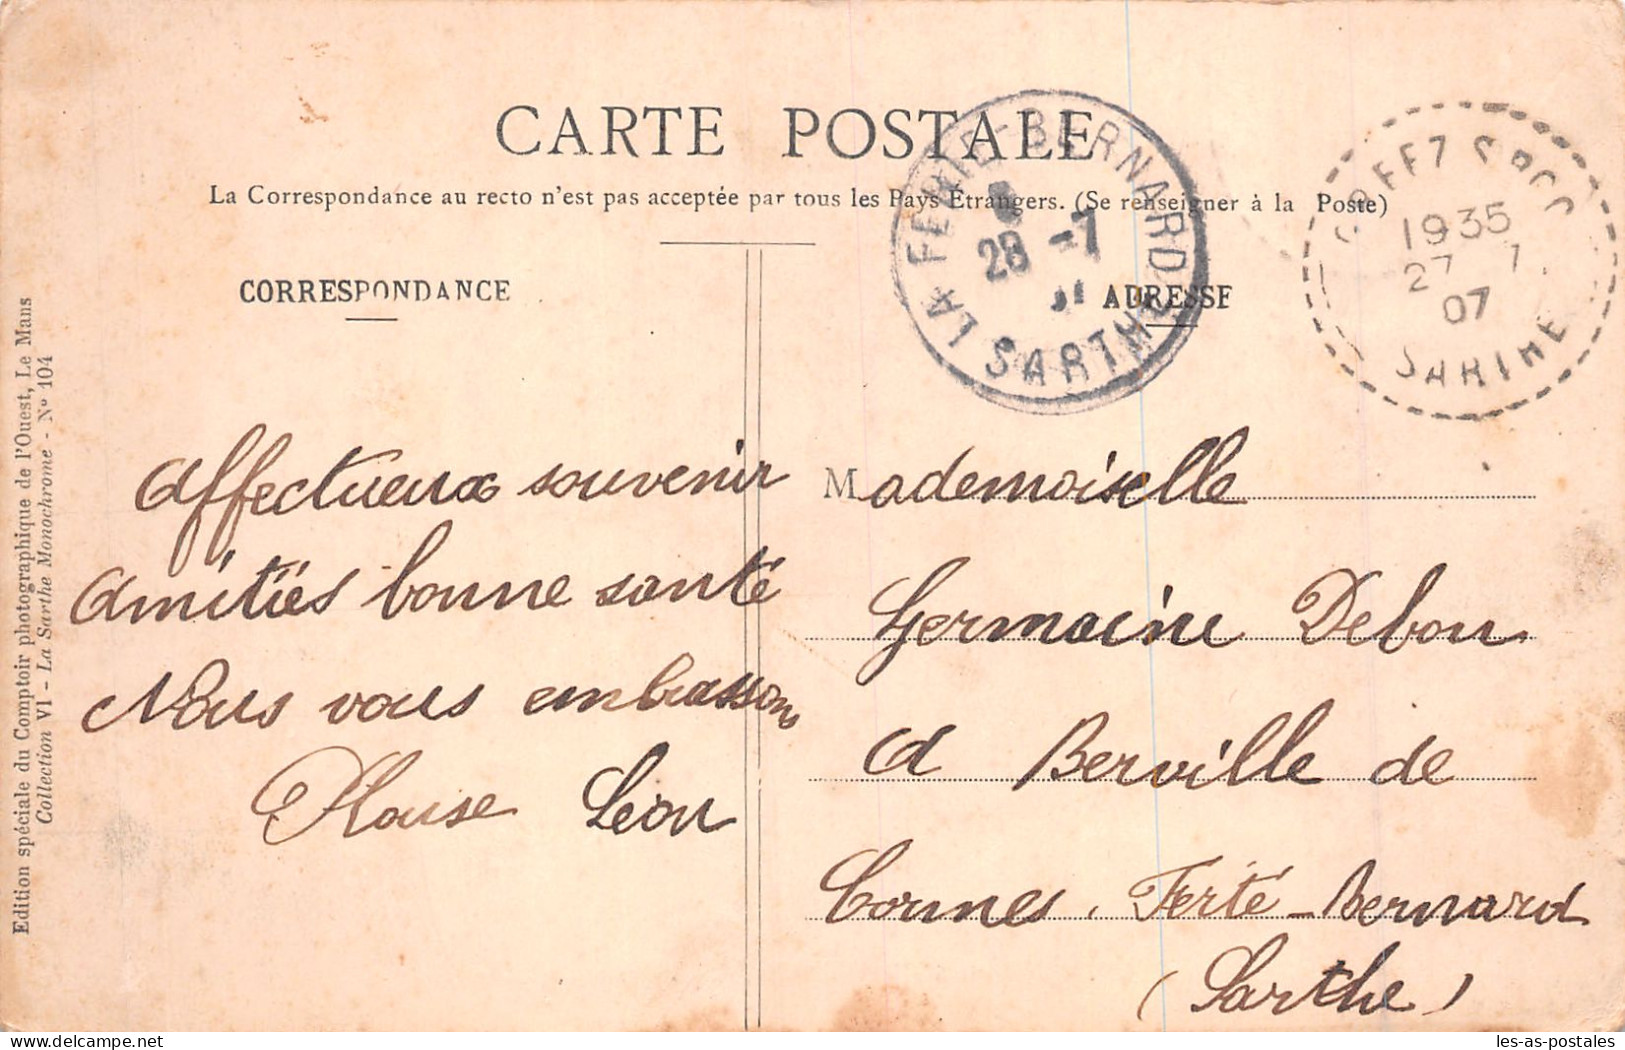 CARTE POSTALE
La Correspondance au recto n'est pas acceptée par tous les Pays Étrangers. (Se renseigner à la Poste)
CORRESPONDANCE
ADRESSE
LA FERTÉ-BERNARD
28 -7
SARTHE
1935
27 7
07
SARTHE
Edition spéciale du Comptoir photographique de l'Ouest, Le Mans
Collection VI - La Sarthe Monochrome - N° 104
Affectueux souvenir
Amitiés bonne santé
Nous vous embrassons
Léon
Mademoiselle
Germaine Debon
a Berville de
Cormes. Ferté-Bernard
(Sarthe)
les-as-postales